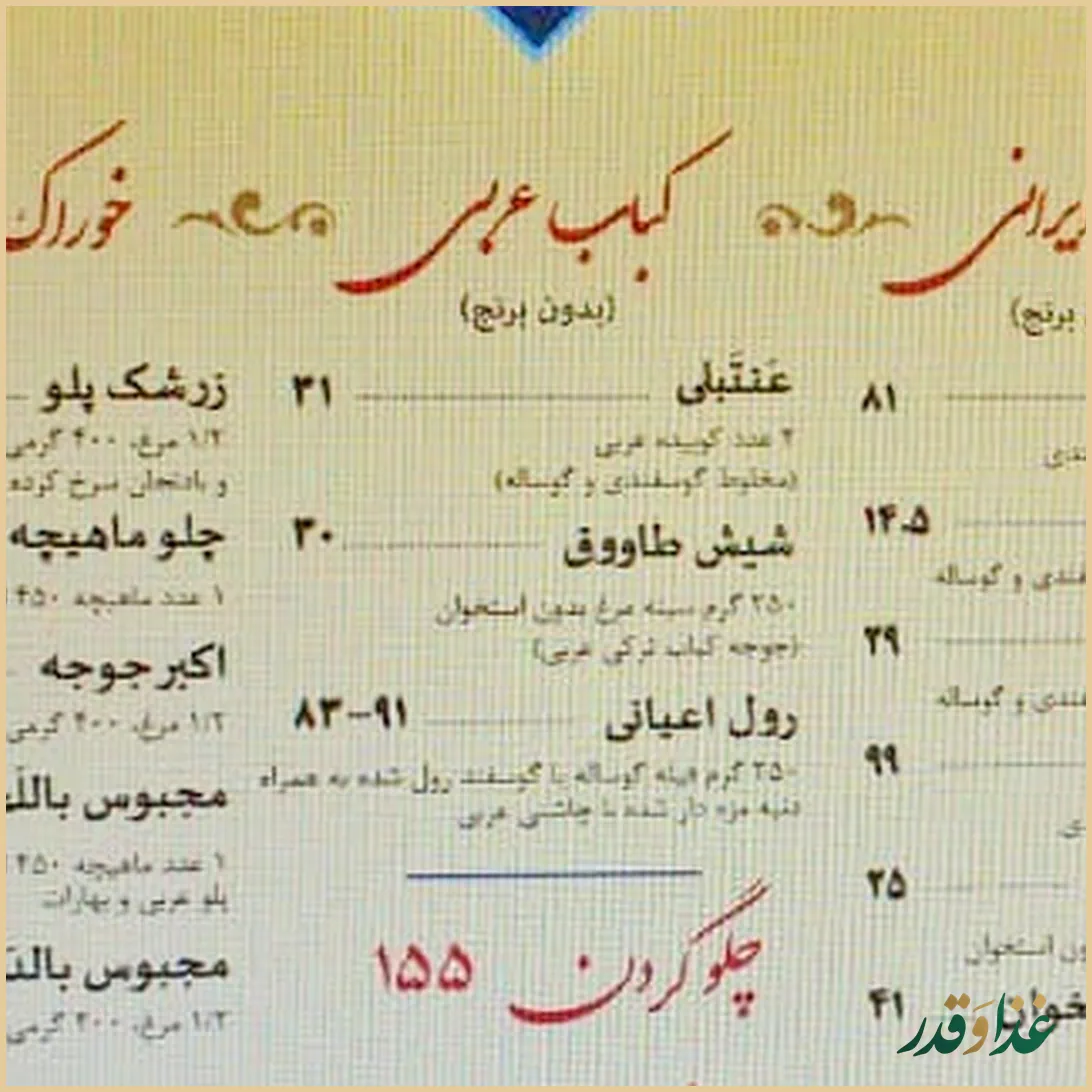 یرانی
برنج)
۸۱
ندی
۱۴۵
فندی و گوساله
۲۹
فندی و گوساله
۹۹
۲۵
ون استخوان
۴۱
کباب عربی
(بدون برنج)
عَنتَبلی ۳۱
۲ عدد کوبیده عربی
(مخلوط گوسفندی و گوساله)
شیش طاووق ۳۰
۲۵۰ گرم سینه مرغ بدون استخوان
(جوجه کباب ترکی عربی)
رول اعیانی ۸۳-۹۱
۲۵۰ گرم فیله گوساله یا گوسفند رول شده به همراه
دنبه مزه دار شده با چاشنی عربی
چلو گردن ۱۵۵
خوراک
زرشک پلو
۱/۲ مرغ، ۴۰۰ گرمی
و بادنجان سرخ کرده
چلو ماهیچه
۱ عدد ماهیچه ۴۵۰
اکبر جوجه
۱/۲ مرغ، ۴۰۰ گرمی
مجبوس بالل
۱ عدد ماهیچه ۴۵۰
پلو عربی و بهارات
مجبوس بالد
۱/۲ مرغ، ۴۰۰ گرمی
غذا و قدر